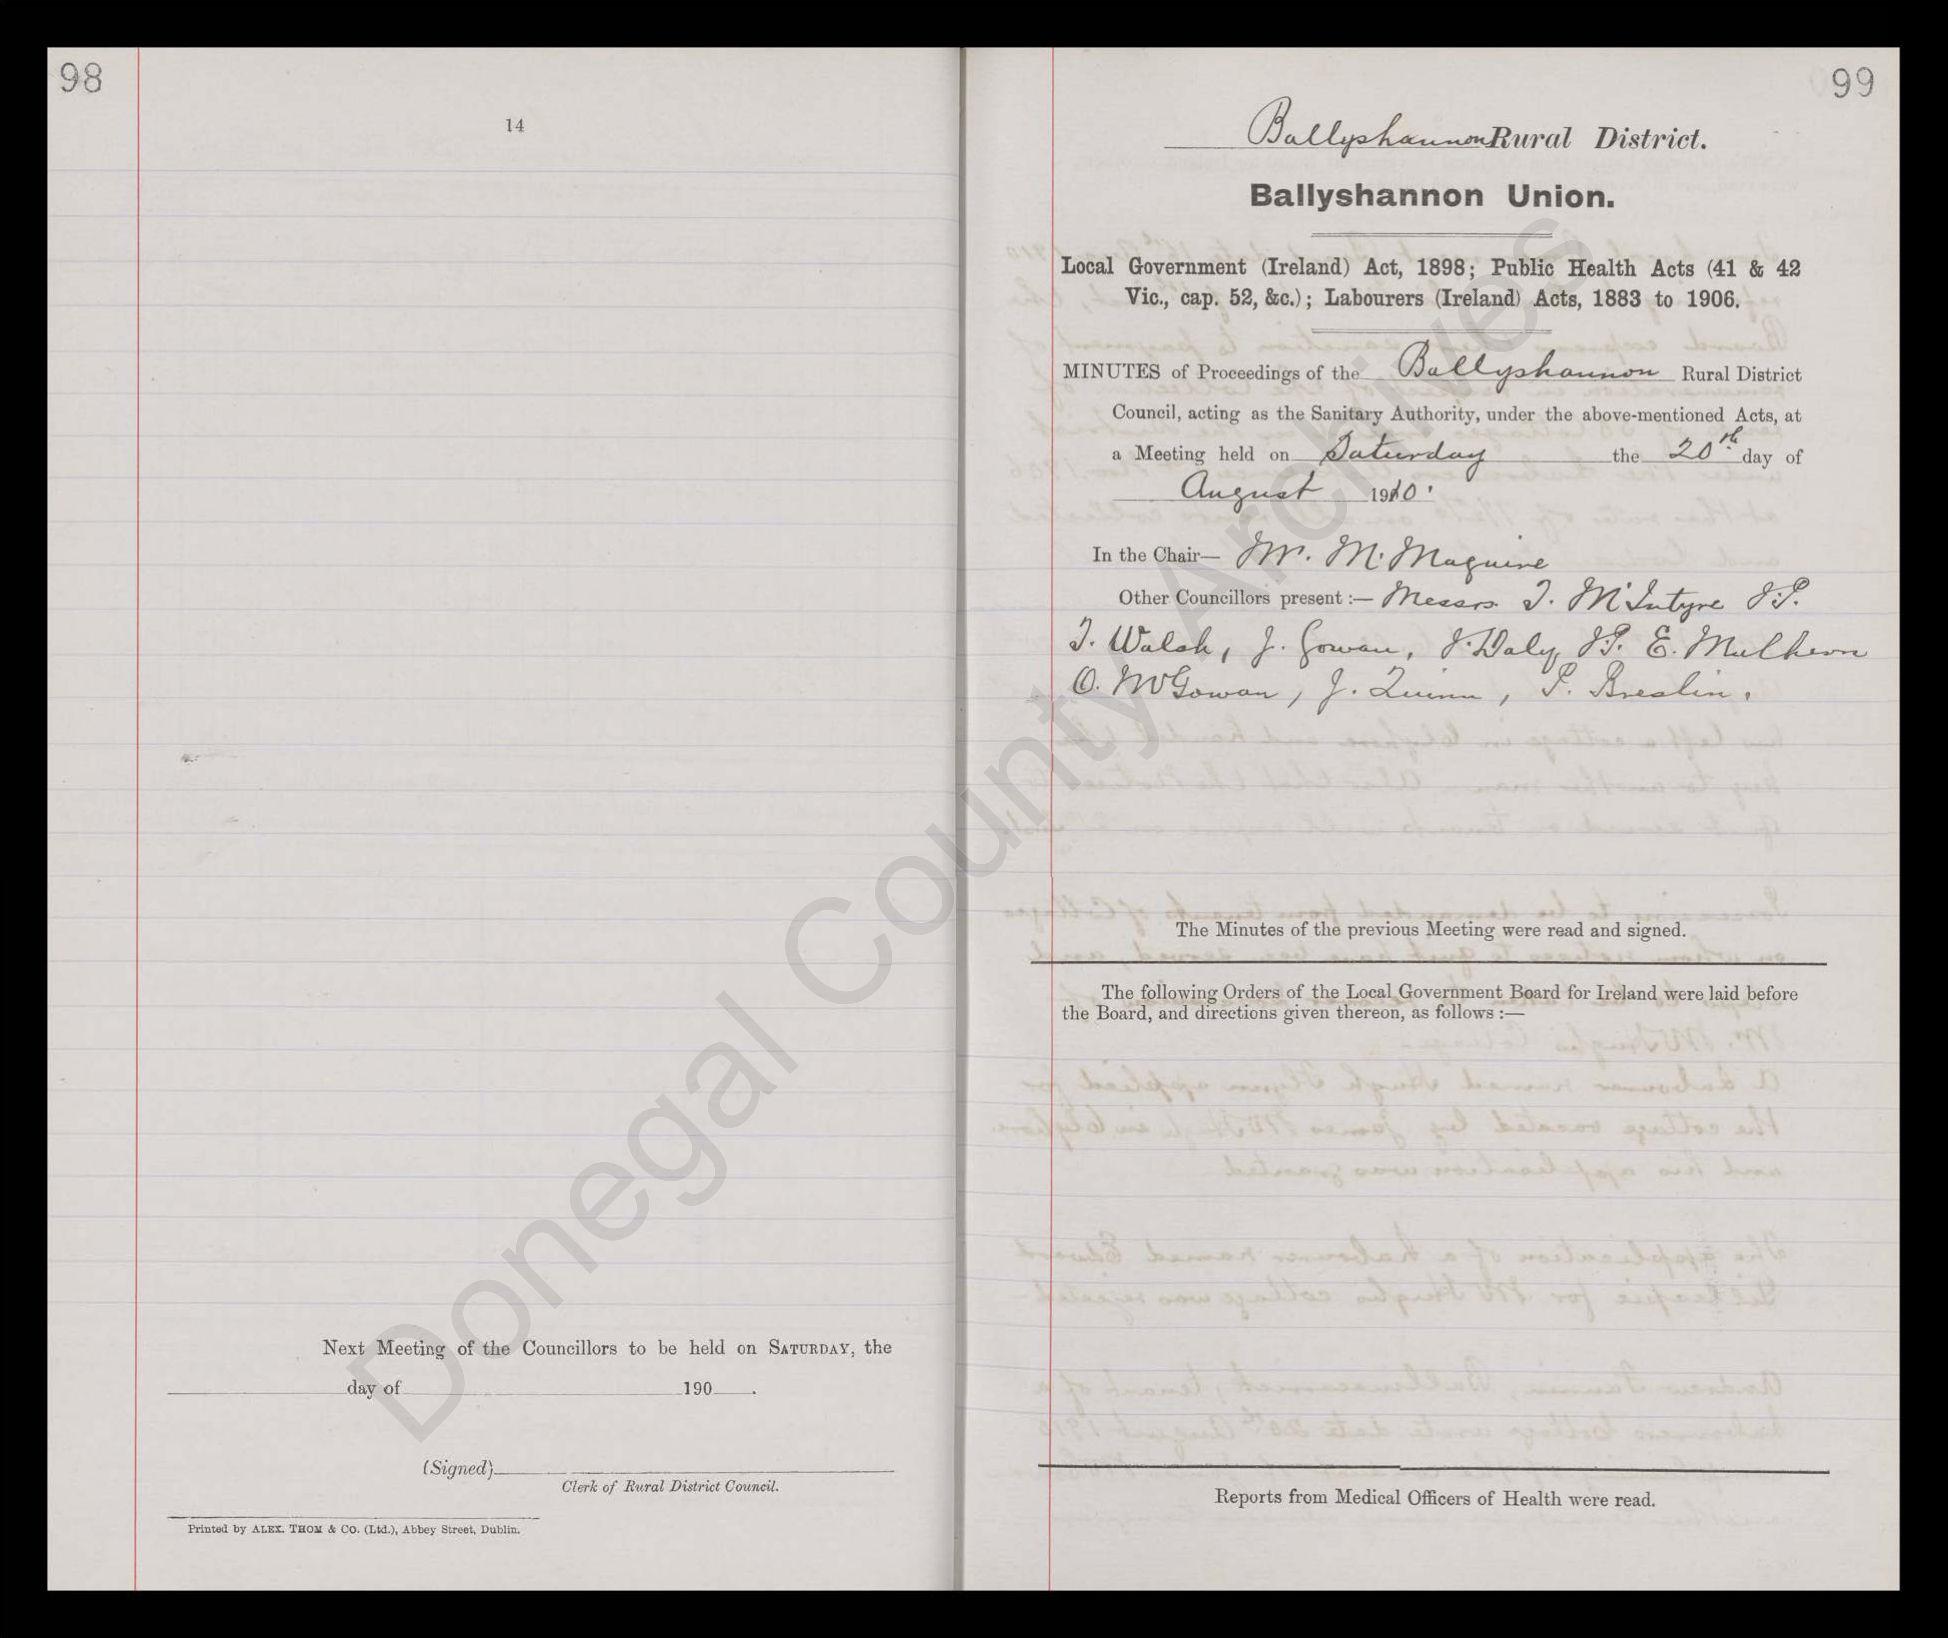 98
14
Next Meeting of the Councillors to be held on SATURDAY, the
day of 190 .
(Signed)
Clerk of Rural District Council.
Printed by ALEX. THOM & Co. (Ltd.), Abbey Street, Dublin.
99
Ballyshannon Rural District.
Ballyshannon Union.
Local Government (Ireland) Act, 1898; Public Health Acts (41 & 42
Vic., cap. 52, &c.); Labourers (Ireland) Acts, 1883 to 1906.
MINUTES of Proceedings of the Ballyshannon Rural District
Council, acting as the Sanitary Authority, under the above-mentioned Acts, at
a Meeting held on Saturday the 20th day of
August 1910.
In the Chair— Mr. M. Maguire
Other Councillors present :— Messrs. T. McIntyre J.P.
T. Walsh, J. Gowan, J. Daly J.P. E. Mulhern
O. McGowan, J. Quinn, P. Breslin.
The Minutes of the previous Meeting were read and signed.
The following Orders of the Local Government Board for Ireland were laid before
the Board, and directions given thereon, as follows :—
Reports from Medical Officers of Health were read.
Donegal County Archives